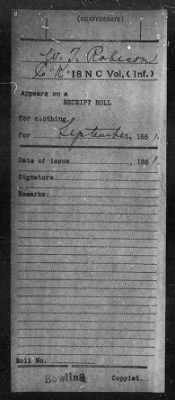 (CONFEDERATE)
W. T. Robeson
Co "K" 18 N C Vol. (Inf.)
Appears on a
RECEIPT ROLL
for clothing,
for September, 1861.
Date of issue , 1861.
Signature
Remarks:
Roll No.
Bowling Copyist.